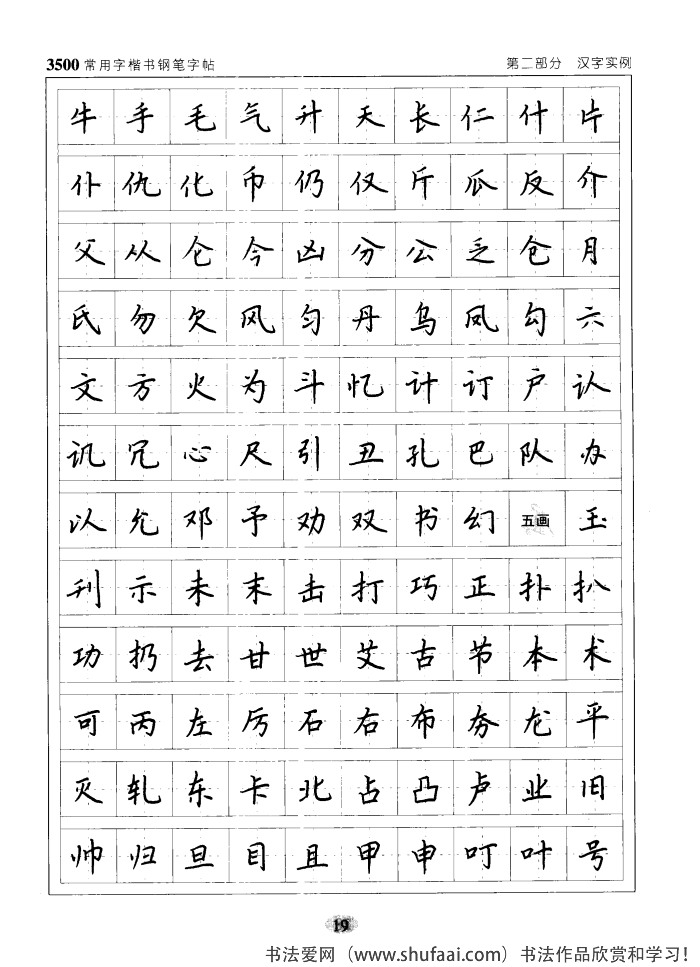 3500常用字楷书钢笔字帖 第二部分 汉字实例
牛手毛气升天长仁什片
仆仇化币仍仅斤瓜反介
父从仑今凶分公乏仓月
氏勿欠风匀丹乌凤勾六
文方火为斗忆计订户认
讥冗心尺引丑孔巴队办
以允邓予劝双书幻五画玉
刊示未末击打巧正扑扒
功扔去甘世艾古节本术
可丙左厉石右布夯龙平
灭轧东卡北占凸卢业旧
帅归旦目且甲申叮叶号
19
书法爱网（www.shufaai.com）书法作品欣赏和学习！